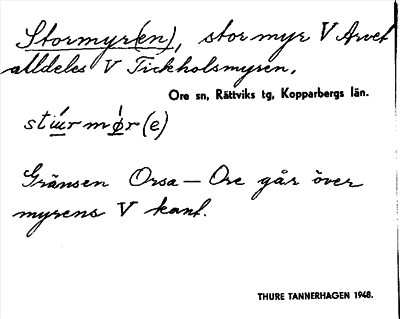 Stormyr(en), stor myr V Arvet
alldeles V Tickholsmyren.
Ore sn, Rättviks tg, Kopparbergs län.
stúrmø̀r(e)
Gränsen Orsa – Ore går över
myrens V kant.
THURE TANNERHAGEN 1948.